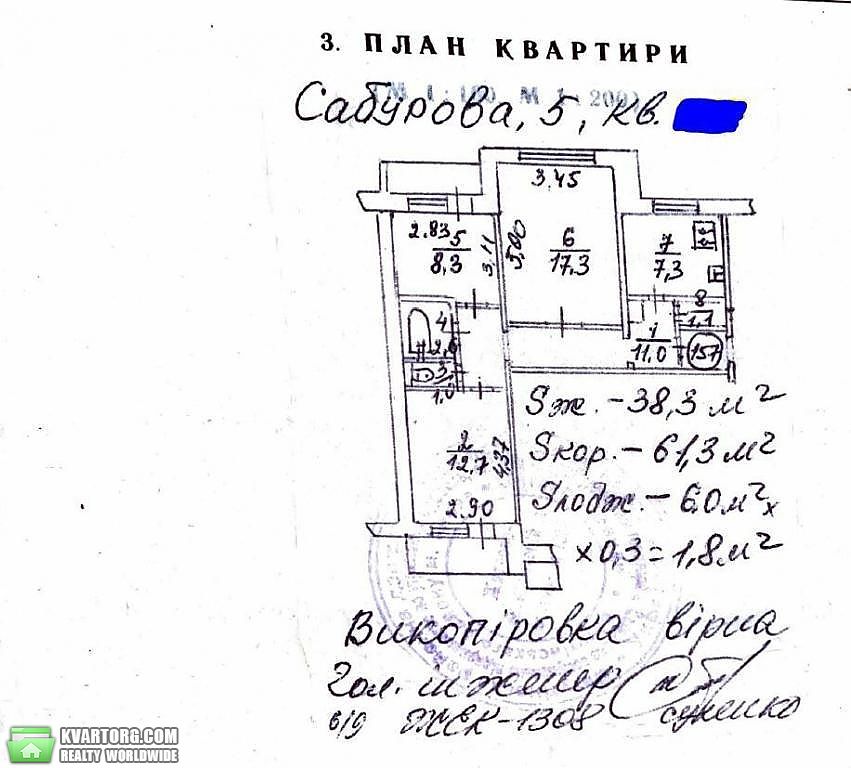 3. ПЛАН КВАРТИРИ
М 1 : 100 М 1 : 200
Сабурова, 5, кв.
3.45
2.83
5
8,3
3.11
5,00
6
17.3
7
7,3
8
1,1
4
2,6
1
11.0
157
3
1.0
Sж. - 38,3 м2
2
12.7
4.37
Sкор. - 61,3 м2
2.90
Sлодж. - 6.0 м2 х
х 0,3 = 1,8 м2
Викопіровка вірна
Гол. інженер
ЖЕК-1308
KVARTORG.COM
REALTY WORLDWIDE